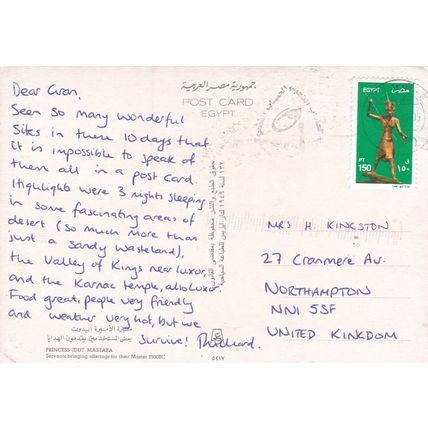 جمهورية مصر العربية
POST CARD
EGYPT
EGYPT مصر
PT 150 ١٥٠ ق
Dear Gran,
Seen so many wonderful
sites in these 10 days that
it is impossible to speak of
them all in a post card.
Highlights were 3 nights sleeping
in some fascinating areas of
desert (so much more than
just a sandy wasteland),
the Valley of Kings near Luxor,
and the Karnac temple, also Luxor.
Food great, people very friendly
and weather very hot, but we
survive!
MRS H KINGSTON
27 Cranmere Av.
NORTHAMPTON
NN1 5SF
UNITED KINGDOM
مقبرة الأميرة ايدوت
بعض المستخدمين يقدمون الهدايا
PRINCESS IDUT MASTABA
Servants bringing offerings for their Master 2300EC
٥٤١٧